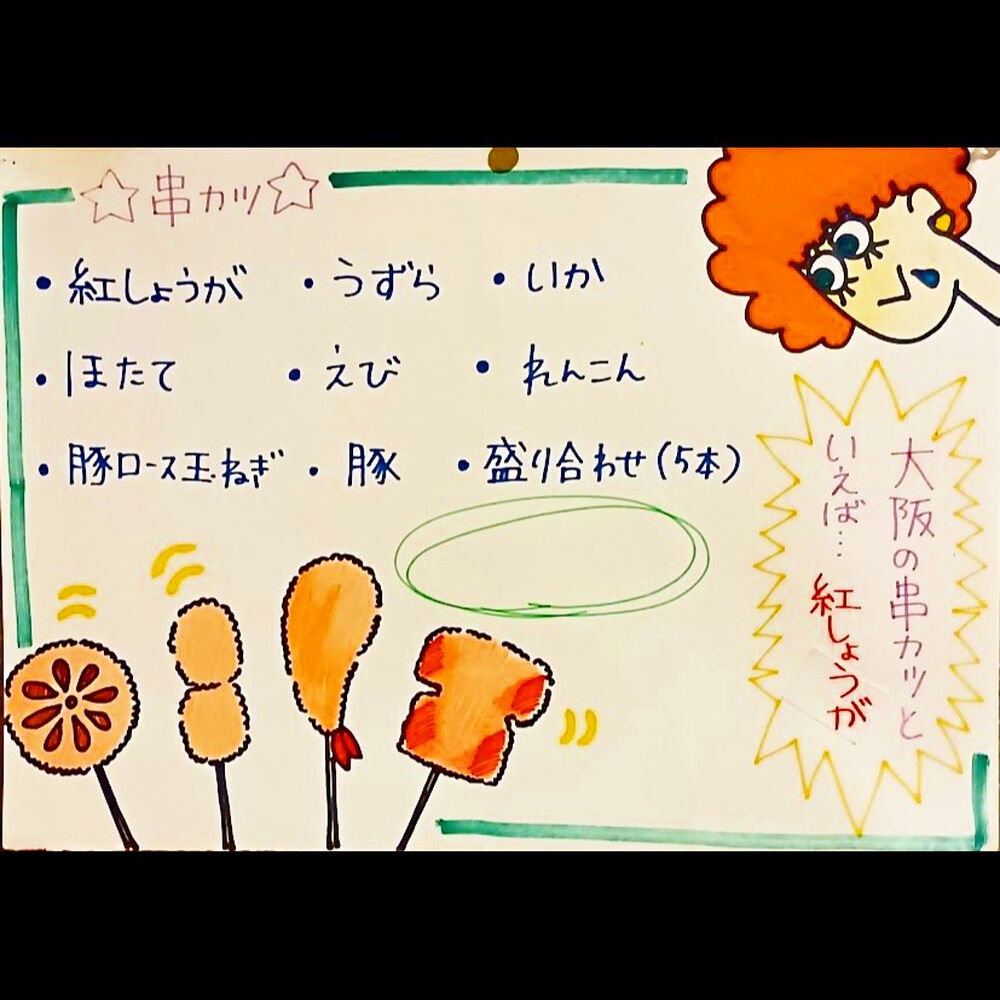 ☆串カツ☆
・紅しょうが ・うずら ・いか
・ほたて ・えび ・れんこん
・豚ロース玉ねぎ ・豚 ・盛り合わせ(5本)
大阪の串カツと
いえば… 紅しょうが